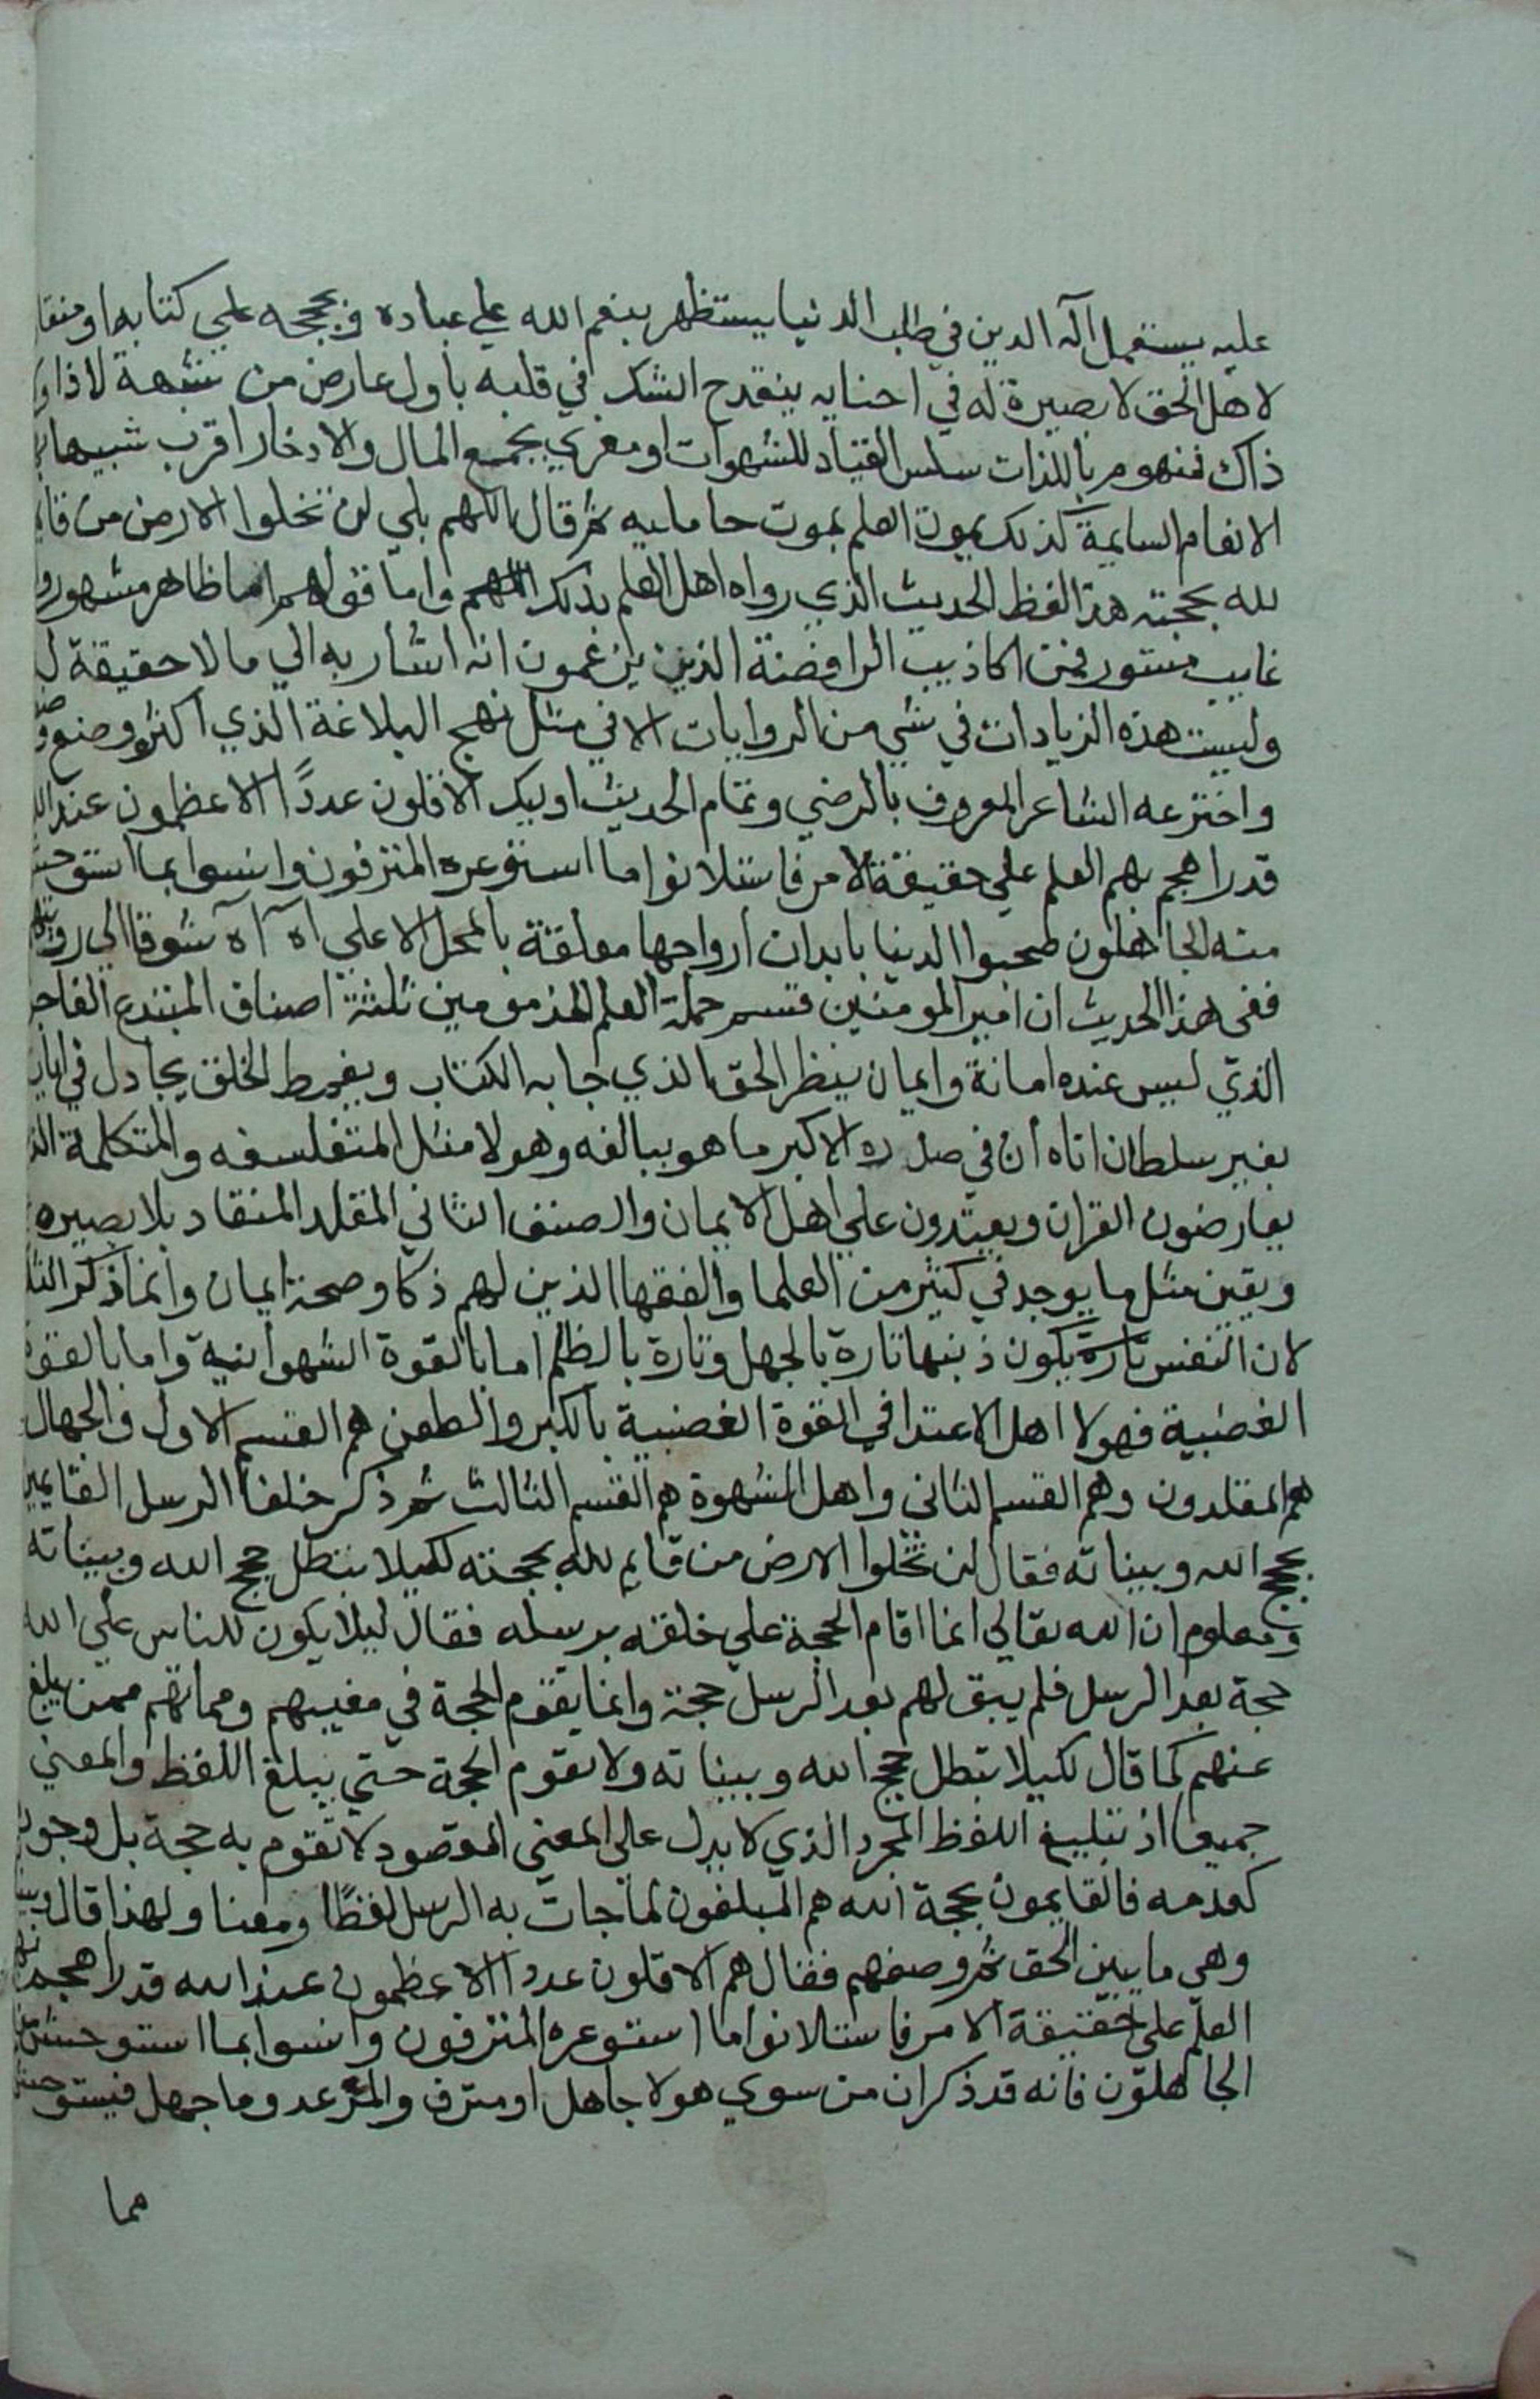 عليه يستعمل آلة الدين في طلب الدنيا يستظهر بنعم الله علي عباده وبحججه علي كتابه او منقا
لاهل الحق لا بصيرة له في احنايه ينقدح الشك في قلبه باول عارض من شبهة لا ذا و
ذاك فمنهوم باللذات سلس القياد للشهوات او مغري بجمع المال والادخار اقرب شبيها
الانعام السايمة كذلك يموت العلم بموت حامليه ثم قال اللهم بلي لن تخلوا الارض من قا
لله بحجته هذا لفظ الحديث الذي رواه اهل العلم بذلك اللهم واما قولهم اما ظاهر مشهور و
غايب مستور فمن اكاذيب الرافضة الذين يزعمون انه اشار به الي ما لا حقيقة ل
وليست هذه الزيادات في شي من الروايات الا في مثل نهج البلاغة الذي اكثره وضع
واخترعه الشاعر المعروف بالرضي وتمام الحديث اوليك الاقلون عددًا الاعظمون عند
قدرا هجم بهم العلم علي حقيقة الامر فاستلانوا ما استوعره المترفون وانسوا بما استوحش
منه الجاهلون صحبوا الدنيا بابدان ارواحها معلقة بالمحل الاعلي اه آه شوقا الي
ففي هذا الحديث ان امير المومنين قسم حملة العلم المذمومين ثلثة اصناف المبتدع الفاجر
الذي ليس عنده امانة وايمان ينظر الحق الذي جا به الكتاب ويغمط الخلق يجادل في ايات
بغير سلطان اتاه ان في صدره الا كبر ما هو ببالغه وهولا مثل المتفلسفه والمتكلمة
يعارضون القران ويعتدون علي اهل الايمان والصنف الثاني المقلد المنقاد بلا بصيره
ويقين مثل ما يوجد في كثير من العلما والفقها الذين لهم ذكا وصحة ايمان وانما ذكر
لان النفس تارة يكون ذنبها تارة بالجهل وتارة بالظلم اما بالقوة الشهوانية واما بالقوة
الغضبية فهولا اهل الاعتدا في القوة الغضبية بالكبر والطعن هم القسم الاول والجهال
هم المقلدون وهم القسم الثاني واهل الشهوة هم القسم الثالث ثم ذكر خلفا الرسل القايمين
بحجج الله وبيناته فقال لن تخلوا الارض من قايم لله بحجته لكيلا تبطل حجج الله وبيناته
ومعلوم ان الله تعالي انما اقام الحجة علي خلقه برسله فقال ليلا يكون للناس علي الله
حجة بعد الرسل فلم يبق لهم بعد الرسل حجة وانما يقوم الحجة في مغيبهم ومماتهم ممن يبلغ
عنهم كما قال لكيلا تبطل حجج الله وبيناته ولا تقوم الحجة حتي يبلغ اللفظ والمعني
جميعا اذ تبليغ اللفظ المجرد الذي لا يدل علي المعني المقصود لا تقوم به حجة بل وجود
كعدمه فالقايمون بحجة الله هم المبلغون لما جات به الرسل لفظًا ومعنا ولهذا قال
وهي ما يبين الحق ثم وصفهم فقال هم الاقلون عددا الاعظمون عند الله قدرا هجم
العلم علي حقيقة الامر فاستلانوا ما استوعره المترفون وانسوا بما استوحش
الجاهلون فانه قد ذكر ان من سوي هولا جاهل او مترف وما جهل فيستوحش
مما